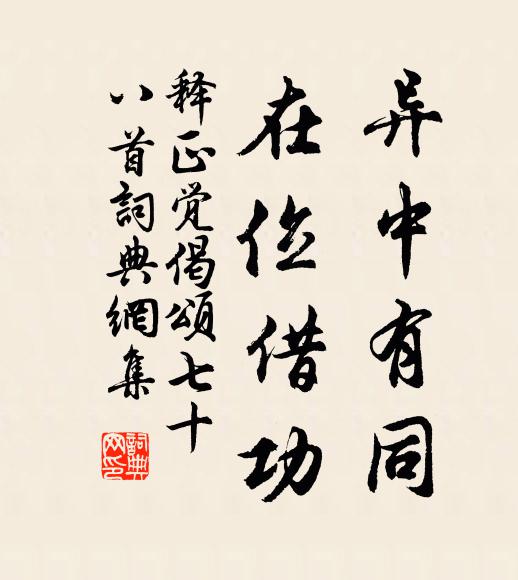 异中有同
在位借功
释正觉偈頌七十
八首詞典網集
詞典网印